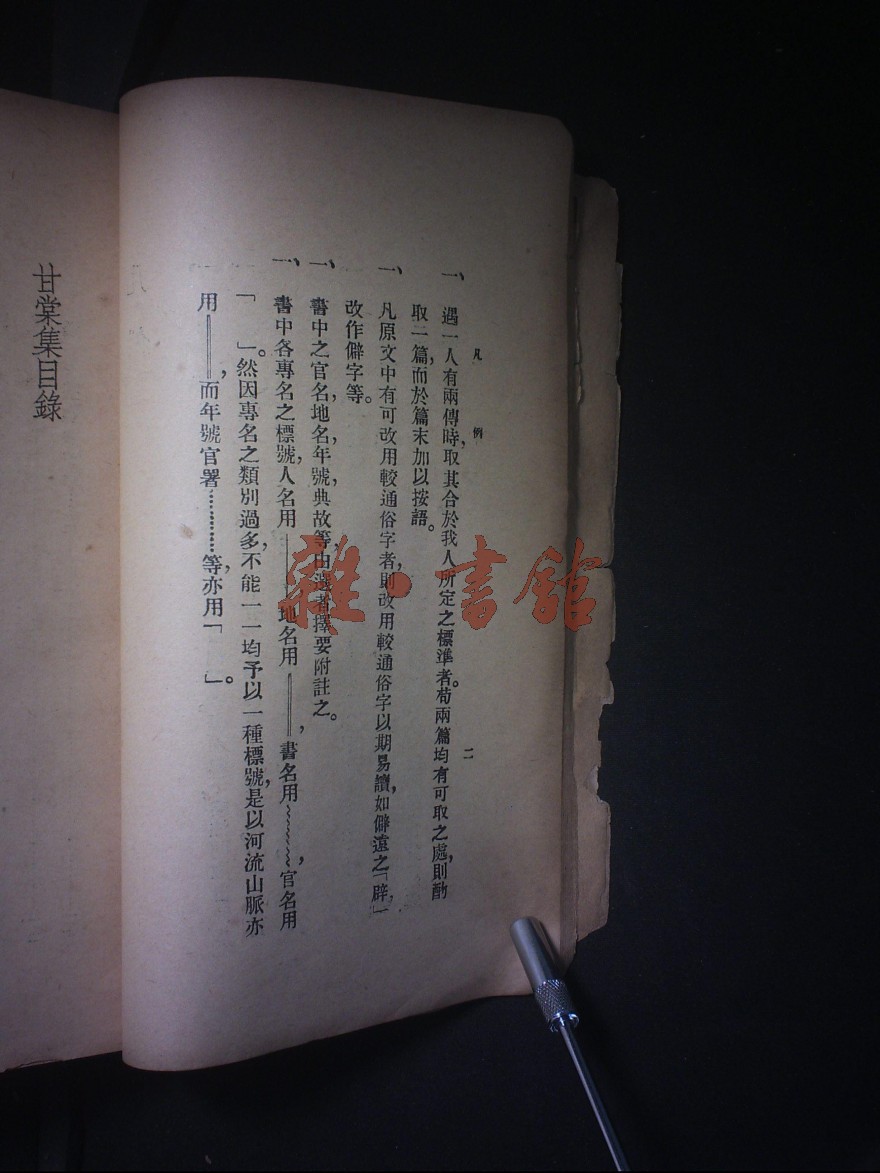 凡例
二
一、遇一人有兩傳時，取其合於我人所定之標準者。苟兩篇均有可取之處，則酌
取二篇，而於篇末加以按語。
一、凡原文中有可改用較通俗字者，則改用較通俗字以期易讀，如僻遠之「辟，」
改作僻字等。
一、書中之官名，地名，年號，典故等，由選者擇要附註之。
一、書中各專名之標號，人名用——，地名用══，書名用﹏﹏，官名用
「　」。然因專名之類別過多，不能一一均予以一種標號，是以河流山脈亦
用══，而年號官署…………，等亦用「　」。
甘棠集目錄
雜·書館